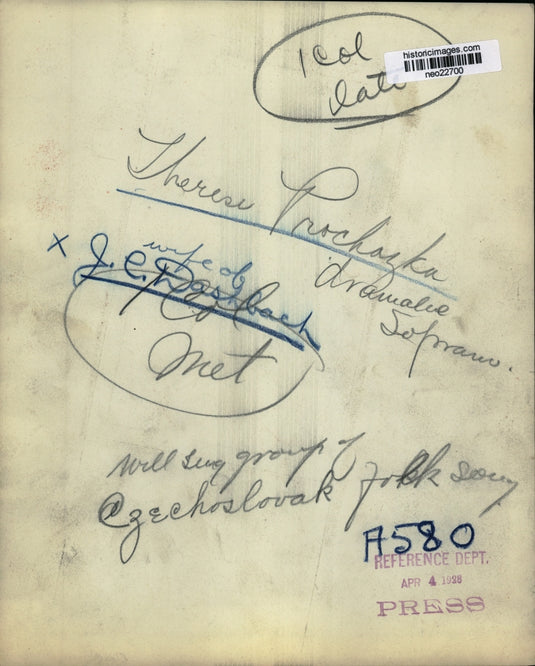 historicimages.com
neo22700
1 Col
Date
Therese Prochazka
dramatic
Soprano.
X wife of
J. C. Dashbach
Met
Will sing group of
Czechoslovak folk song
A580
REFERENCE DEPT.
APR 4 1928
PRESS